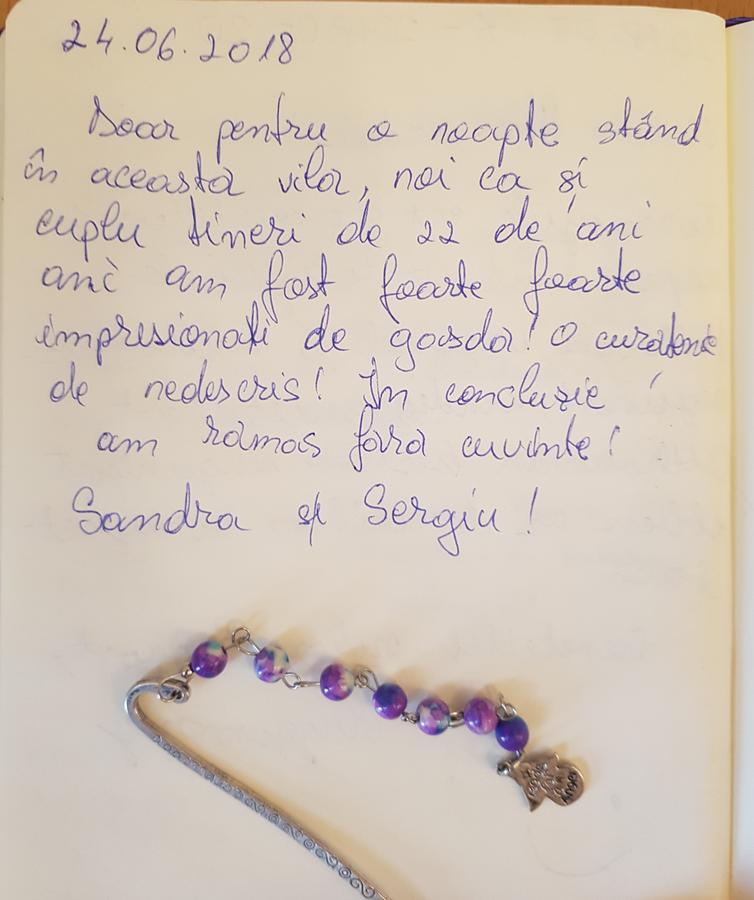 24.06.2018
Doar pentru o noapte stând
în aceasta vila, noi ca și
cuplu tineri de 22 de ani
ani am fost foarte foarte
impresionați de gasda! O curatenie
de nedescris! În concluzie
am ramas fara cuvinte!
Sandra și Sergiu!
Angel